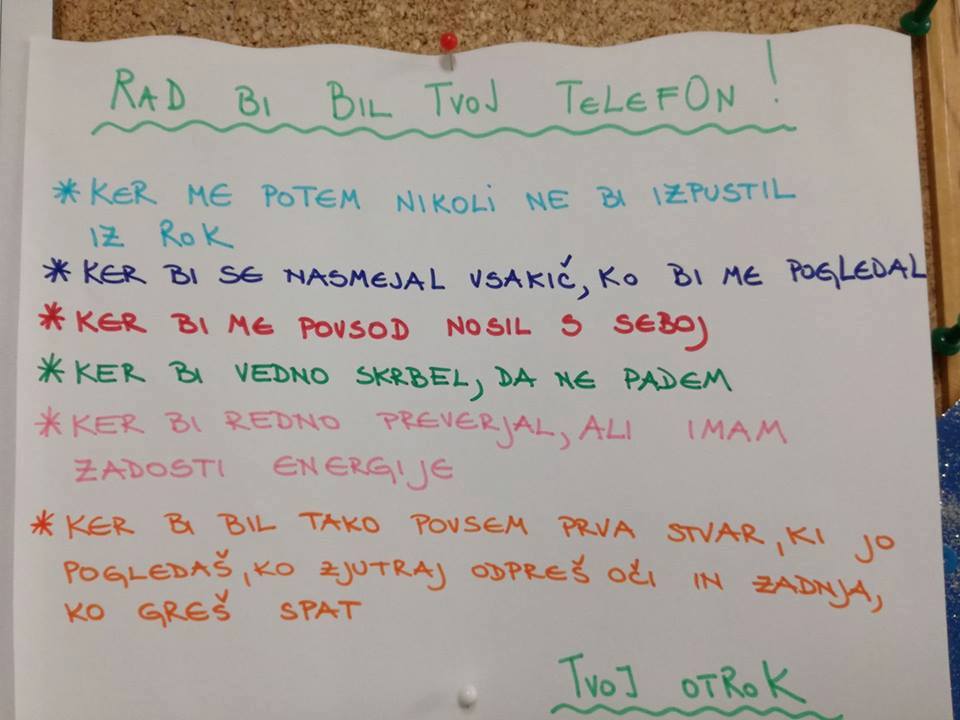 RAD BI BIL TVOJ TELEFON!
* KER ME POTEM NIKOLI NE BI IZPUSTIL
IZ ROK
* KER BI SE NASMEJAL VSAKIČ, KO BI ME POGLEDAL
* KER BI ME POVSOD NOSIL S SEBOJ
* KER BI VEDNO SKRBEL, DA NE PADEM
* KER BI REDNO PREVERJAL, ALI IMAM
ZADOSTI ENERGIJE
* KER BI BIL TAKO POVSEM PRVA STVAR, KI JO
POGLEDAŠ, KO ZJUTRAJ ODPREŠ OČI IN ZADNJA,
KO GREŠ SPAT
TVOJ OTROK